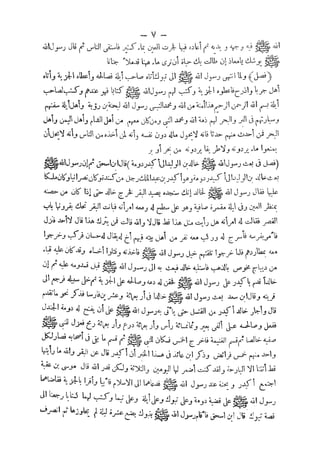 — ٧ —
الله ﷺ فيه وجهه ويديه ثم أعاده فيها فجرت العين بماء كثير فاستقى الناس ثم قال رسول الله
ﷺ يوشك يامعاذ إن طالت بك حياة أن ترى ما ههنا قد ملأ جنانا
﴿فصل﴾ ولما انتهى رسول الله ﷺ الى تبوك أتاه صاحب أيلة فصالحه وأعطاه الجزية وأتاه
أهل جربا وأذرح فاعطوه الجزية وكتب لهم رسول الله ﷺ كتابا فهو عندهم وكتب لصاحب
أيلة بسم الله الرحمن الرحيم هذا أمنة من الله ومحمد النبي رسول الله ليحنة بن رؤبة وأهل أيلة سفنهم
وسيارتهم في البر والبحر لهم ذمة الله ومحمد النبي ومن كان معهم من أهل الشام وأهل اليمن وأهل
البحر فمن أحدث منهم حدثا فانه لايحول ماله دون نفسه وأنه لمن أخذه من الناس وأنه لايحل أن
يمنعوا ماء يردونه ولا طريقا يردونه من بحر أو بر
﴿فصل في بعث رسول الله ﷺ خالد بن الوليد الى أكيدر دومة﴾ قال ابن اسحق ثم إن رسول الله ﷺ
بعث خالد بن الوليد الى أكيدر دومة وهو أكيدر بن عبد الملك رجل من كندة وكان نصرانيا وكان ملكا
عليها فقال رسول الله ﷺ لخالد إنك ستجده يصيد البقر فخرج خالد حتى إذا كان من حصنه
بمنظر العين وفي ليلة مقمرة صافية وهو على سطح له ومعه امرأته فباتت البقر تحك بقرونها باب
القصر فقالت له امرأته هل رأيت مثل هذا قط قال لا والله قالت فمن يترك هذا قال لا أحد فنزل
فأمر بفرسه فأسرج له وركب معه نفر من أهل بيته فيهم أخ له يقال له حسان فركب وخرجوا
معه بمطاردهم فلما خرجوا تلقتهم خيل رسول الله ﷺ فاخذته وقتلوا أخاه وقد كان عليه قباء
من ديباج مخوص بالذهب فاستلبه خالد فبعث به الى رسول الله ﷺ قبل قدومه عليه ثم إن
خالدا قدم باكيدر على رسول الله ﷺ فحقن له دمه وصالحه على الجزية ثم خلى سبيله فرجع الى
قريته وقال ابن سعد بعث رسول الله ﷺ خالدا في أربعمائة وعشرين فارسا فذكر نحو ماتقدم
قال وأجار خالد أكيدر من القتل حتى يأتي به رسول الله ﷺ على أن يفتح له دومة الجندل
ففعل وصالحه على ألفي بعير وثمانمائة رأس وأربعمائة درع وأربعمائة رمح فعزل للنبي ﷺ
صفيه خالصا ثم قسم الغنيمة فاخرج الخمس فكان للنبي ﷺ ثم قسم ما بقي في أصحابه فصار لكل
واحد منهم خمس فرائض وذكر ابن عائذ في هذا الخبر أن أكيدر قال عن البقر والله ما رأيتها
قط أتتنا الا البارحة ولقد كنت أضمر لها اليومين والثلاثة ولكن قدر الله قال موسى بن عقبة
اجتمع أكيدر ويحنة عند رسول الله ﷺ فدعاهما الى الاسلام فأبيا وأقرا بالجزية فقاضاهما
رسول الله ﷺ على قضية دومة وعلى تبوك وعلى أيلة وعلى تيما وكتب لهما كتابا رجعنا الى
قصة تبوك قال ابن اسحق فأقام رسول الله ﷺ بتبوك بضع عشرة ليلة لم يجاوزها ثم انصرف